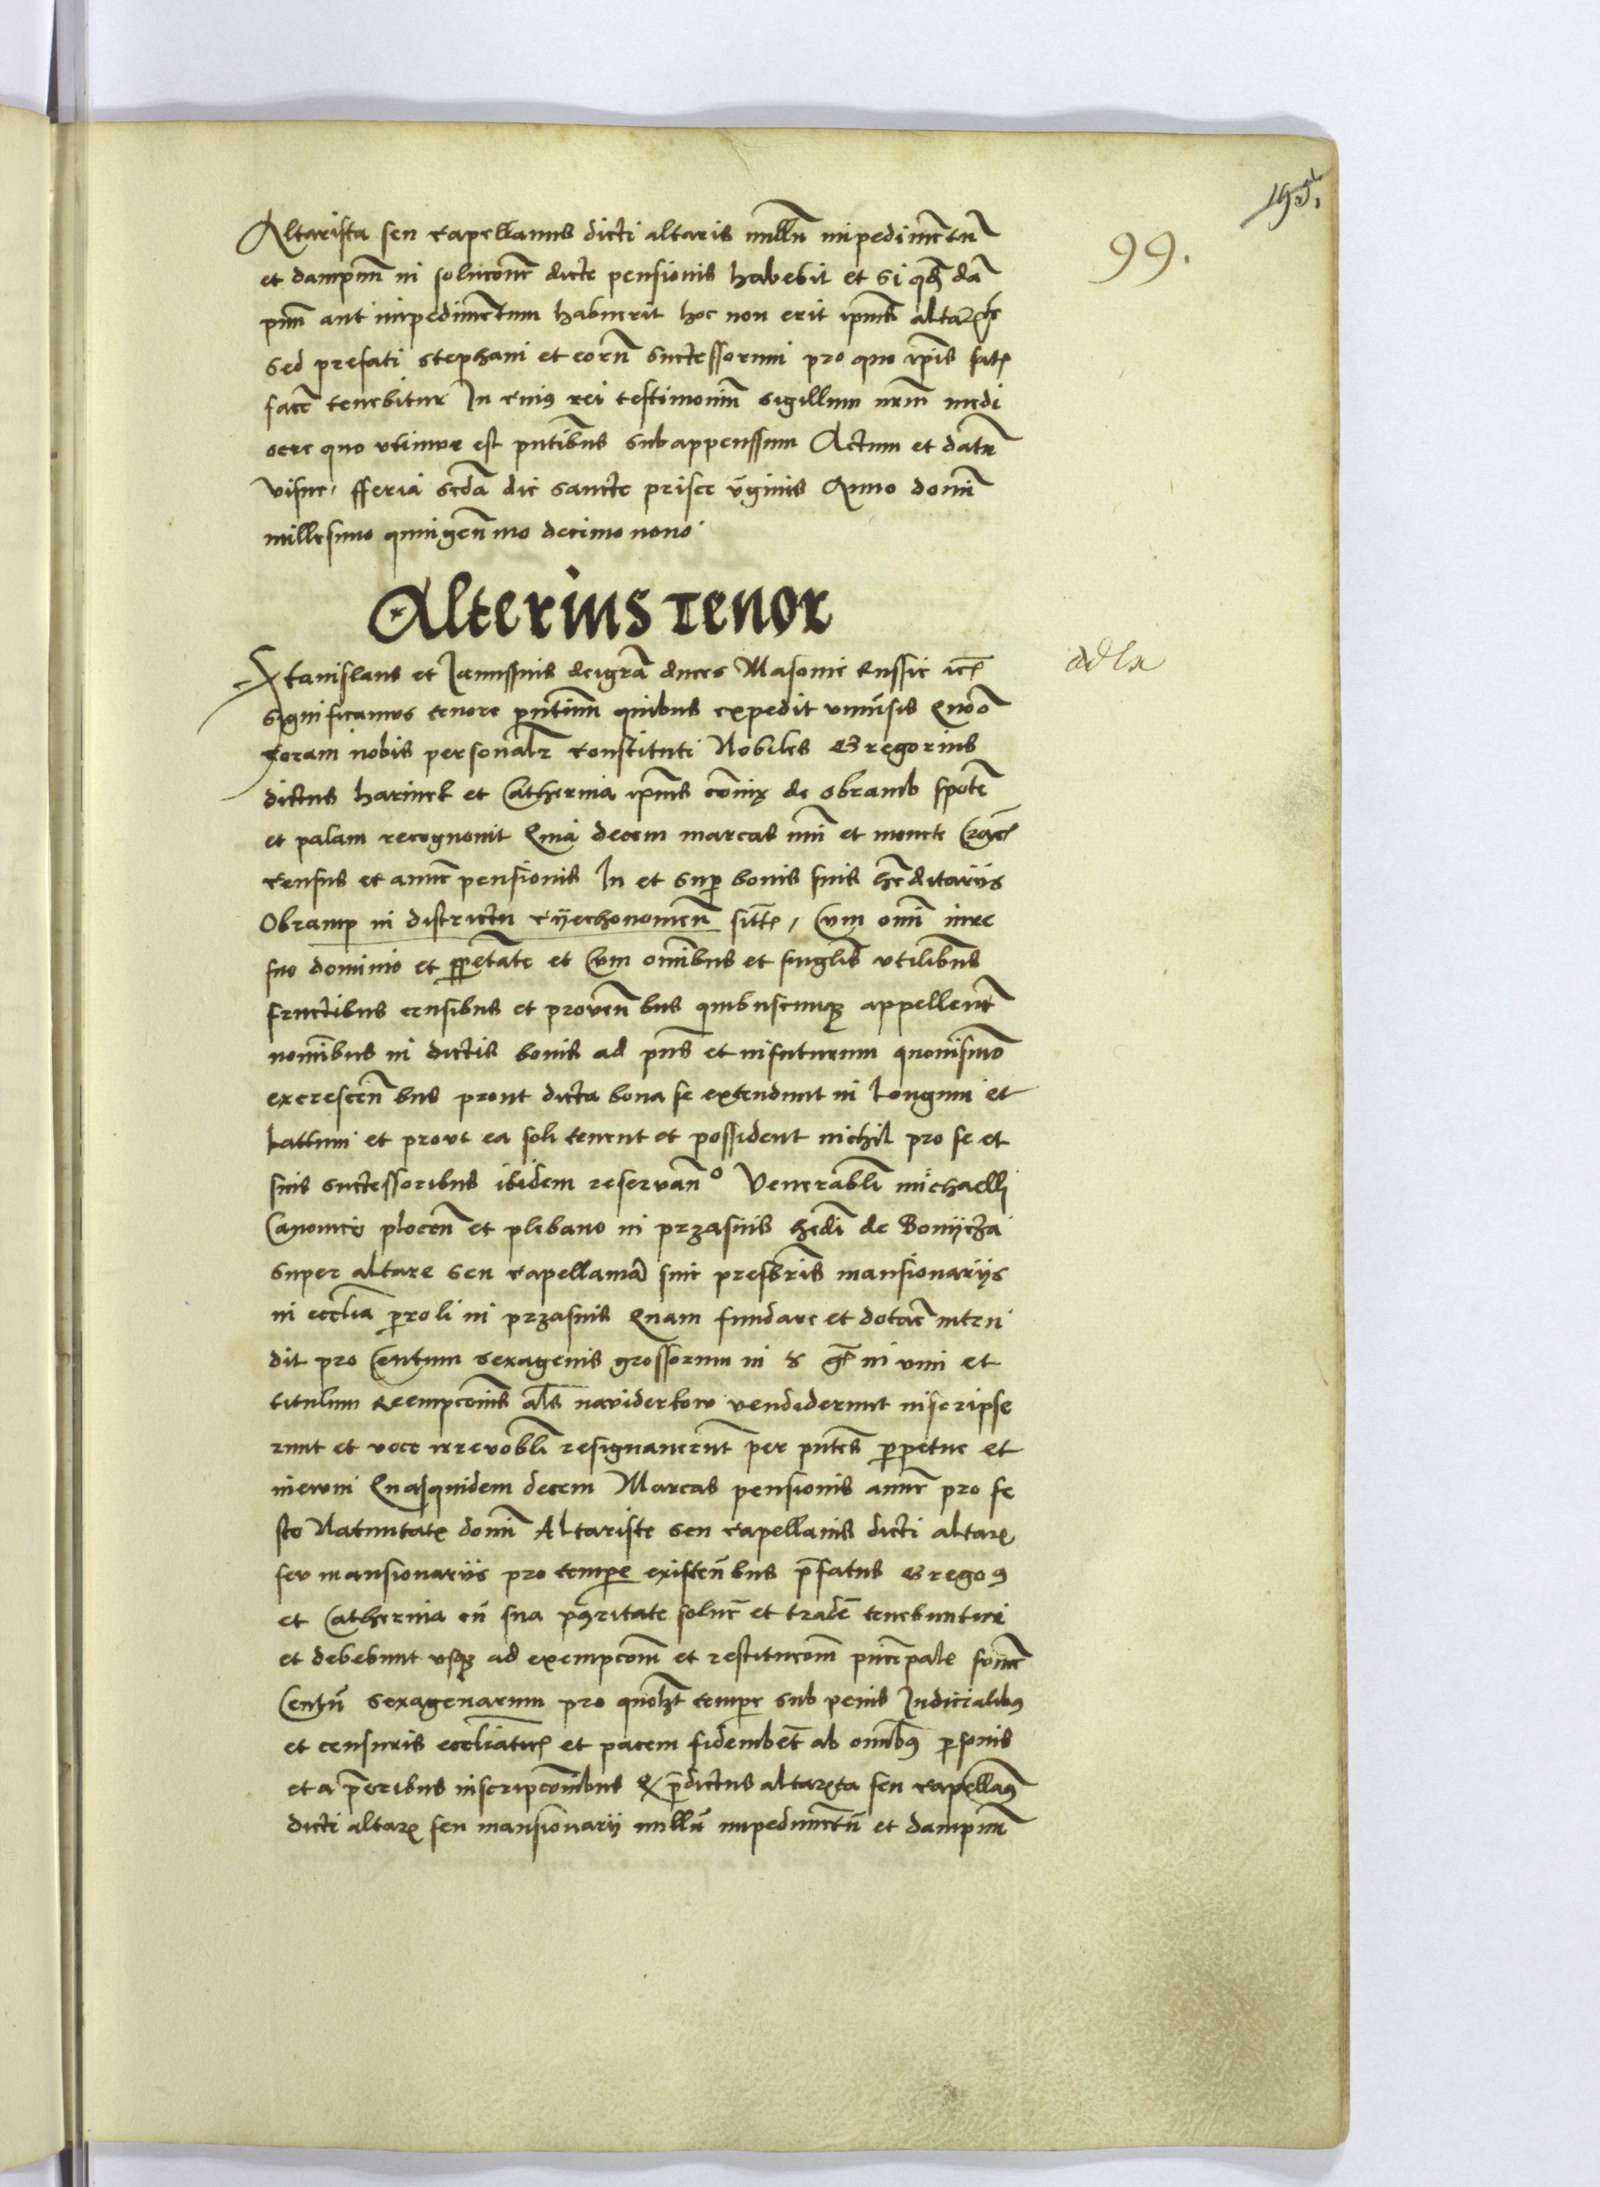 195.
99.
Altarista seu capellanus dicti altaris nullu̅ impedime̅tu̅
et dampnu̅ in soluc̅one̅ dicte pensionis habebit et si q̅d da̅
pnu̅ aut impedime̅tum habuerit hoc non erit ip̅ius altar̅
sed prefati Stephani et eoru̅ successorum pro quo ip̅is satis
face̅ tenebitur In cuius rei testimoniu̅ sigillum nr̅m medi
ocre quo utimur est pn̅tibus subappenssum Actum et datu̅
visne / fferia sc̅da die sancte prisce v̅ginis Anno domi̅
millesimo quingen̅mo decimo nono
Alterius Tenor
Stanislaus et Janussius dei gra̅ duces Masouie Russie ac̅
significamus tenore pn̅tium quibus expedit vniu̅sis Quo̅
coram nobis personalr̅ constituti Nobiles Gregorius
dictus harinek et Catherina ip̅ius co̅nix de obramb spo̅te
et palam recognouit Quia decem marcas nu̅i et monete
census et annue̅ pensionis In et sup̱ bonis suis he̅ditariis
Obramp in districtu cÿechonouien̅ sitt̅ / Cum om̅i iure
suo dominio et p̱p̱etate̅ et cum om̅ibus et singulis vtilibus
fructibus censibus et proven̅bus quibuscumq̱ appellent̅
nomi̅bus in dictis bonis ad pn̅s et infuturum quouismo̅
excrescen̅bus prout dicta bona se extendunt in Longum et
Lattum et prout ea soli tenent et possident nichil pro se et
suis successoribus ibidem reservan̅o Venerabli̅ michaelli
Canonico plocen̅ et plebano in przasnis he̅di̅ de Boniycza
super altare seu capellania̅ siue presbr̅is mansionariis
in eccl̅ia p̱roli in przasnis Quam fundare et dotare̅ inten
dit pro Centum sexagenis grossorum in gr̅ in vim et
titulum Reempc̅onis al̅s naviderkow vendiderunt inscripse
runt et voce irrevobli̅ resignauerunt̅ per pn̅tes p̱petue et
in ewm Quasquidem decem Marcas pensionis annue̅ pro fe
sto Natiuitat̅ domi̅ Altariste seu capellanis dicti altar̅
seu mansionariis pro temp̱e existen̅bus p̅fatus Gregoꝰ
et Catherina cu̅ sua p̱ꝰritate solue̅ et trade̅ tenebuntur
et debebunt vsq̱ ad exempc̅om et restituc̅om pn̅cipale
Centu̅ sexagenarum pro quoli̅bet temp̱e sub penis Iudicialibꝰ
et censuris eccl̅iatic̅ et pacem fidem ab om̅ibꝰ p̱sonis
et a p̅oribus inscripc̅o̅ibus Et p̅dictus altarista seu capellaꝰ
dicti altar̅ seu mansionarij nullu̅ impedime̅tu̅ et dampnu̅